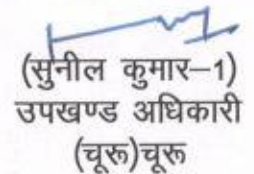 (सुनील कुमार–1)
उपखण्ड अधिकारी
(चूरू)चूरू